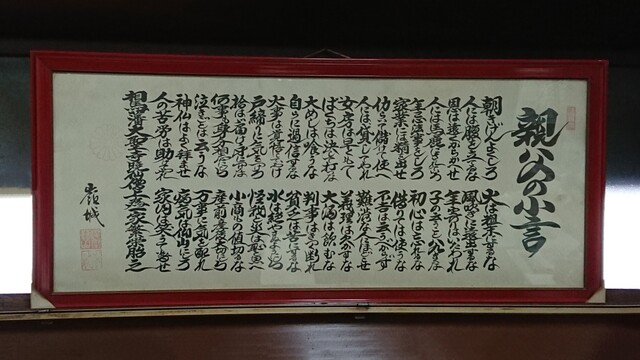 親父の小言
朝きげんよくしろ 火は粗末にするな
人には腰を低くしろ 風吹きに遠出するな
恩は遠くからかくせ 年寄りはいたわれ
人には馬鹿にされろ 子の云うこと八九きくな
年忌法事をしろ 初心は忘れるな
家業には精を出せ 借りては使うな
働いて儲けて使え 不吉は云うべからず
人には貸してやれ 難渋な人にほどこせ
女房は早くもて 義理は欠かすな
ばくちは決して打つな 大酒は飲むな
大めしは喰うな 判事はきつく断れ
自らに過信するな 貧乏は苦にするな
大事は覚悟しておけ 水は絶やさぬ様にしろ
戸締りに気をつけろ 怪我と災は恥と思へ
拾わば届け身につけるな 小商ものを値切るな
何事も身分相応にしろ 産前産後大切に
泣きごとは云うな 万事に気を配れ
神仏はよく拝ませ 病気は仙山にしろ
人の苦労は助けてやれ 家内は笑うて暮せ
相馬藩大聖寺暁仙僧